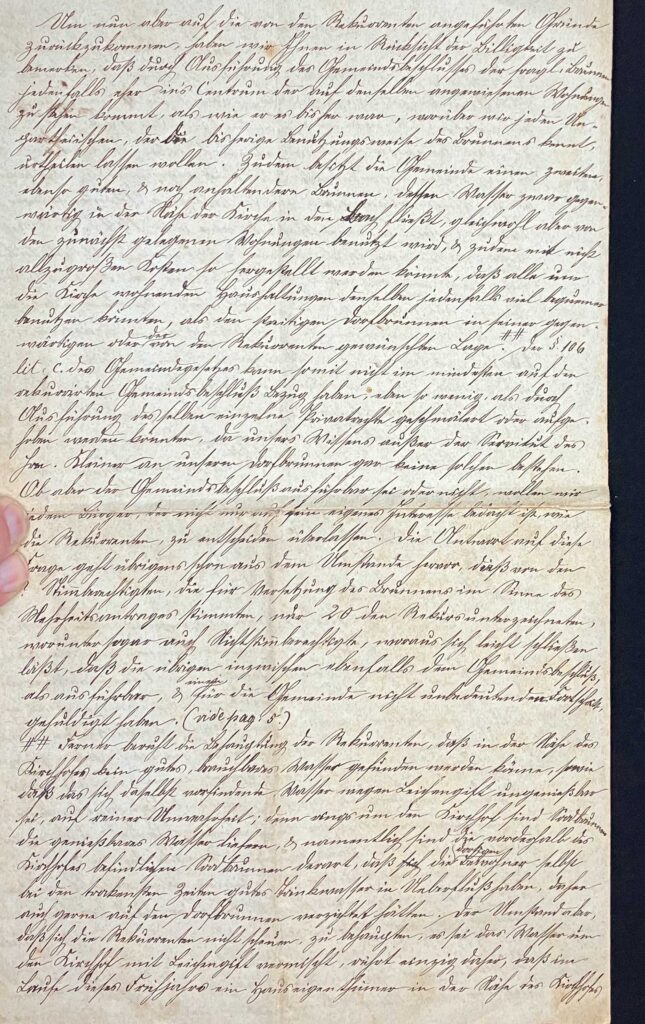 Um nun aber auf die von den Rekurrenten angeführten Gründe
zurückzukommen, haben wir Ihnen in Rücksicht der Billigkeit zu
bemerken, daß durch Ausführung des Gemeindsbeschlusses der fragl. Brunnen
jedenfalls eher ins Centrum der auf denselben angewiesenen Wohnungen
zu stehen kommt, als wie er es bisher war, worüber wir jeden Un-
partheiischen, der die bisherige Benutzungsweise des Brunnens kennt,
urtheilen lassen wollen. Zudem besitzt die Gemeinde einen zweiten,
ebenso guten, & noch anhaltendern Brunnen, dessen Wasser zwar gegen-
wärtig in der Nähe der Kirche in den Bach fließt, gleichwohl aber von
den zunächst gelegenen Wohnungen benutzt wird, & zudem mit nicht
allzugroßen Kosten so hergestellt werden könnte, daß alle um
die Kirche wohnenden Haushaltungen denselben jedenfalls viel bequemer
benutzen könnten, als den streitigen Dorfbrunnen in seiner gegen-
wärtigen oder der von den Rekurrenten gewünschten Lage. ## Der §. 106
lit. c. des Gemeindegesetzes kann somit nicht im mindesten auf den
rekurirten Gemeindsbeschluß Bezug haben, eben so wenig, als durch
Ausführung desselben einzelne Privatrechte geschmälert oder aufge-
hoben werden könnten, da unsers Wissens außer der Servitut des
Hrn. Kleiner an unserm Dorfbrunnen gar keine solchen bestehen.
Ob aber der Gemeindsbeschluß ausführbar sei oder nicht, wollen wir
jedem Bürger, der nicht nur auf sein eigenes Interesse bedacht ist, wie
die Rekurrenten, zu entscheiden überlassen. Die Antwort auf diese
Frage geht übrigens schon aus dem Umstande hervor, daß von den
Stimberechtigten, die für Versetzung des Brunnens im Sinne des
Mehrheitsantrages stimmten, nur 20 den Rekurs unterzeichneten,
worunter sogar auch Nichtstimberechtigte, woraus sich leicht schließen
läßt, daß die übrigen inzwischen ebenfalls dem Gemeindsbeschluß,
als ausführbar, & einem für die Gemeinde nicht unbedeutenden Fortschritt,
gehuldigt haben. (vide pag. 5)
## Ferner beruht die Behauptung der Rekurrenten, daß in der Nähe des
Kirchhofes kein gutes, brauchbares Wasser gefunden werden könne, sowie
daß das sich daselbst vorfindende Wasser wegen Leichengift ungenießbar
sei, auf reiner Unwahrheit; denn rings um den Kirchhof sind Sodbrunnen
die genießbares Wasser liefern, & namentlich sind die vorderhalb des
Kirchhofes befindlichen Sodbrunnen derart, daß die dortigen Bewohner selbst
bei den trockensten Zeiten gutes Trinkwasser in Ueberfluß haben, daher
auch gerne auf den Dorfbrunnen verzichtet hätten. Der Umstand aber,
daß sich die Rekurrenten nicht scheuen, zu behaupten, es sei das Wasser um
den Kirchhof mit Leichengift vermischt, rührt einzig daher, daß im
Laufe dieses Frühjahrs ein Hauseigenthümer in der Nähe des Kirchhofes